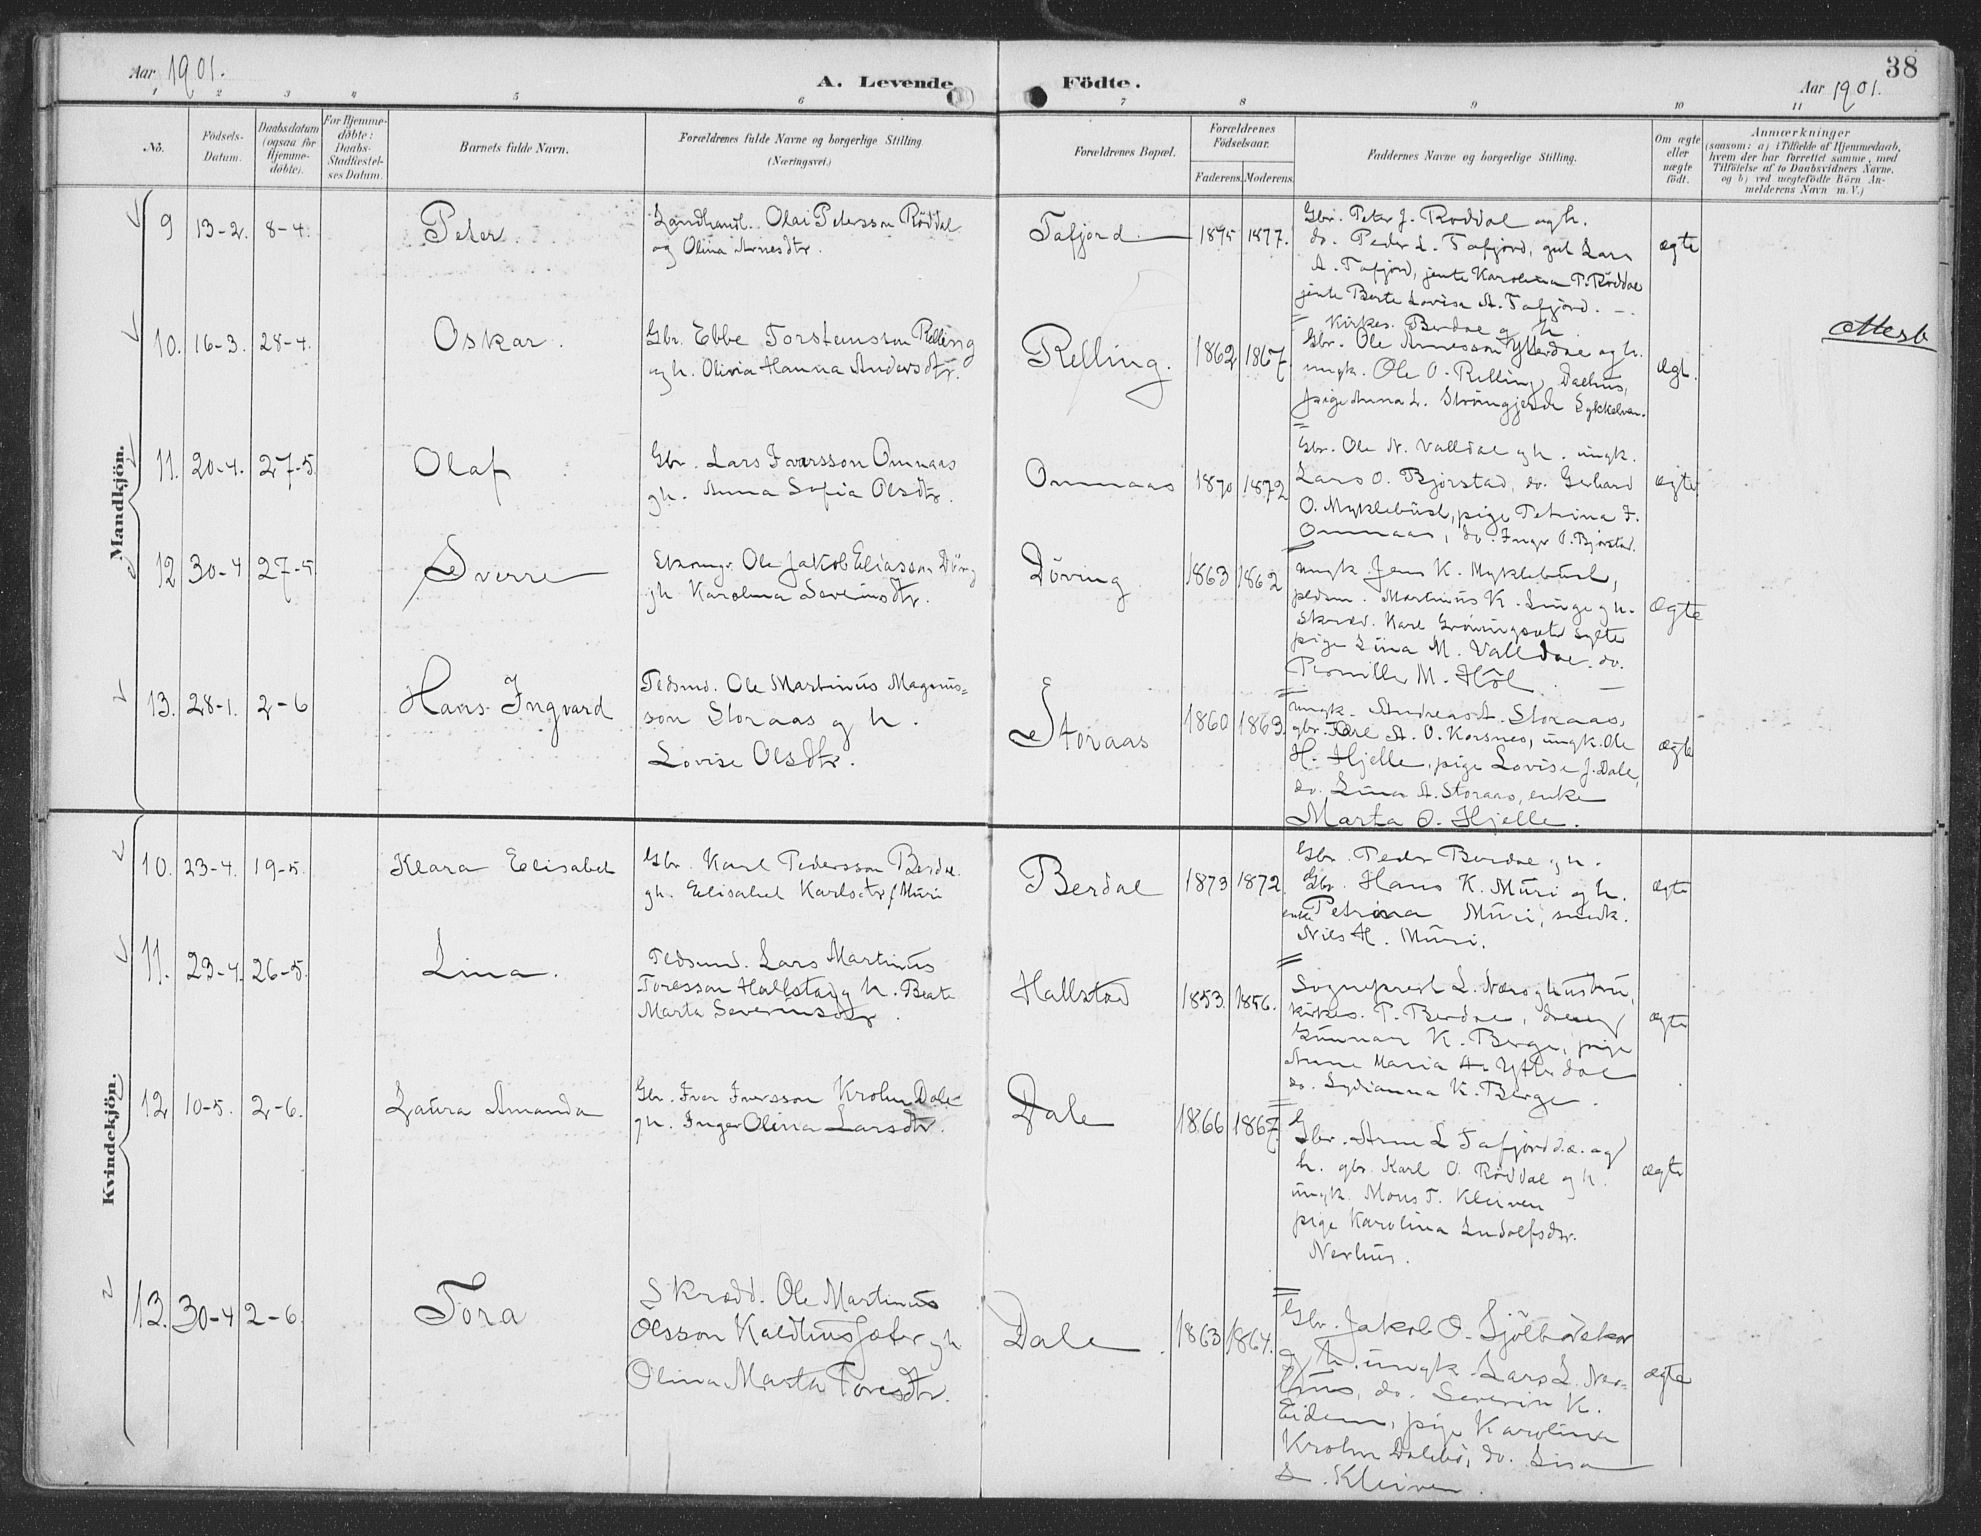 38
Aar 1901.
A. Levende Födte.
Aar 1901.
1 2 3 4 5 6 7 8 9 10 11
No.
Födsels-Datum.
Daabsdatum (ogsaa for Hjemme-döbte).
For Hjemme-döbte: Daabs-Stadfæstel-ses Datum.
Barnets fulde Navn.
Forældrenes fulde Navne og borgerlige Stilling (Næringsvei.)
Forældrenes Bopæl.
Forældrenes Födselsaar.
Faderens. Moderens.
Faddernes Navne og borgerlige Stilling.
Om ægte eller uægte födt.
Anmærkninger
(saasom: a) i Tilfælde af Hjemmedaab,
hvem der har forrettet samme, med
Tilföielse af to Daabsvidners Navne.
og b) ved uægtefödte Börn An-
melderens Navn m. V.)
Mandkjön.
9 13-2. 8-4. Peter.
Landhandl. Olai Petersson Röddal
og Olina Arnesdtr.
Tafjord 1875 1877.
Gbr. Peter J. Röddal og h.
do. Peder L. Tafjord, gut Lars
A. Tafjord, jente Karolina P. Röddal
jente Berte Lovise A. Tafjord.
ægte
10. 16-3. 28-4. Oskar.
Gbr. Ebbe Torsteinson Relling
og h. Olivia Hanna Andersdtr.
Relling. 1862 1867.
Kirkes. Berdal og h.
Gbr. Ole Arnesson Ytterdal og h.
ungk. Ole O. Relling, Dalhus,
pige Anna L.
ægt.
Attest
11. 20-4. 27-5. Olaf
Gbr. Lars Ivarsson Ommaas
gh. Anna Sofia Olsdtr.
Ommaas 1870 1872
Gbr. Ole N. Valldal gh. ungk.
Lars O. Bjorstad, do. Gerhard
O. Myklebust, pige Petrina I.
Ommaas, do. Inger O. Bjorstad.
ægte
12 30-4 27-5 Sverre
Ole Jakob Eliassen Döving
gh. Karolina Severinsdtr.
Döving 1863 1862
ungk. Jens K. Myklebust,
pedsm. Martinus K. Linge gh.
skræd. Karl Grönningsæter Sylte
pige Lina M. Valldal. do.
Pernille M. Höl.
ægte
13. 28-1. 2-6 Hans Ingvard
Pedsmd. Ole Martinus Magnus=
son Storaas g h.
Lovise Olsdtr.
Storaas 1860 1863.
ungk. Andreas A. Storaas,
gbr. A. O. Korsnes, ungk. Ole
H. Hjelle, pige Lovise J. Dale,
do. Lina A. Storaas, enke
Marta O. Hjelle.
ægte
Kvindekjön.
10. 23-4. 19-5. Klara Elisabet
Gbr. Karl Pedersson Berdal
gh. Elisabet Karlsdtr f Muri
Berdal 1873 1872
Gbr. Peder Berdal gh.
Gbr. Hans K. Muri og h.
enke Petrina Muri, smedk.
Nils H. Muri.
ægte
11. 23-4. 26-5. Lina.
Pedsmd. Lars Martinus
Toresson Hallstad g h. Beate
Marta Severinsdtr.
Hallstad 1853. 1856.
Sogneprest L. Næro g hustru,
kirkes. P. Berdal, dreng
Gunnar K. Berge, pige
Anne Maria A. Ytterdal
do. Lydianna K. Berge.
ægte
12 10-5. 2-6. Laura Amanda
Gbr. Ivar Iversson Krohn Dale
gh. Inger Olina Larsdtr.
Dale 1866 1867.
Gbr. Arne L. Tafjord d.æ. og
h. gbr. Karl O. Röddal g h.
ungk. Mons T. Kleiven
pige Karolina Ludolfsdtr.
Nerhus.
ægte
13. 30-4 2-6. Tora
Skrædd. Ole Martinus
Olsson Kaldhussæter gh
Olina Marta Toresdtr.
Dale 1863 1864.
Gbr. Jakob O.
g h. ungk. Lars L. Ner=
hus, do. Severin K.
Eidem, pige Karolina
Krohn Dalebö, do. Lisa
L. Kleiven.
ægte